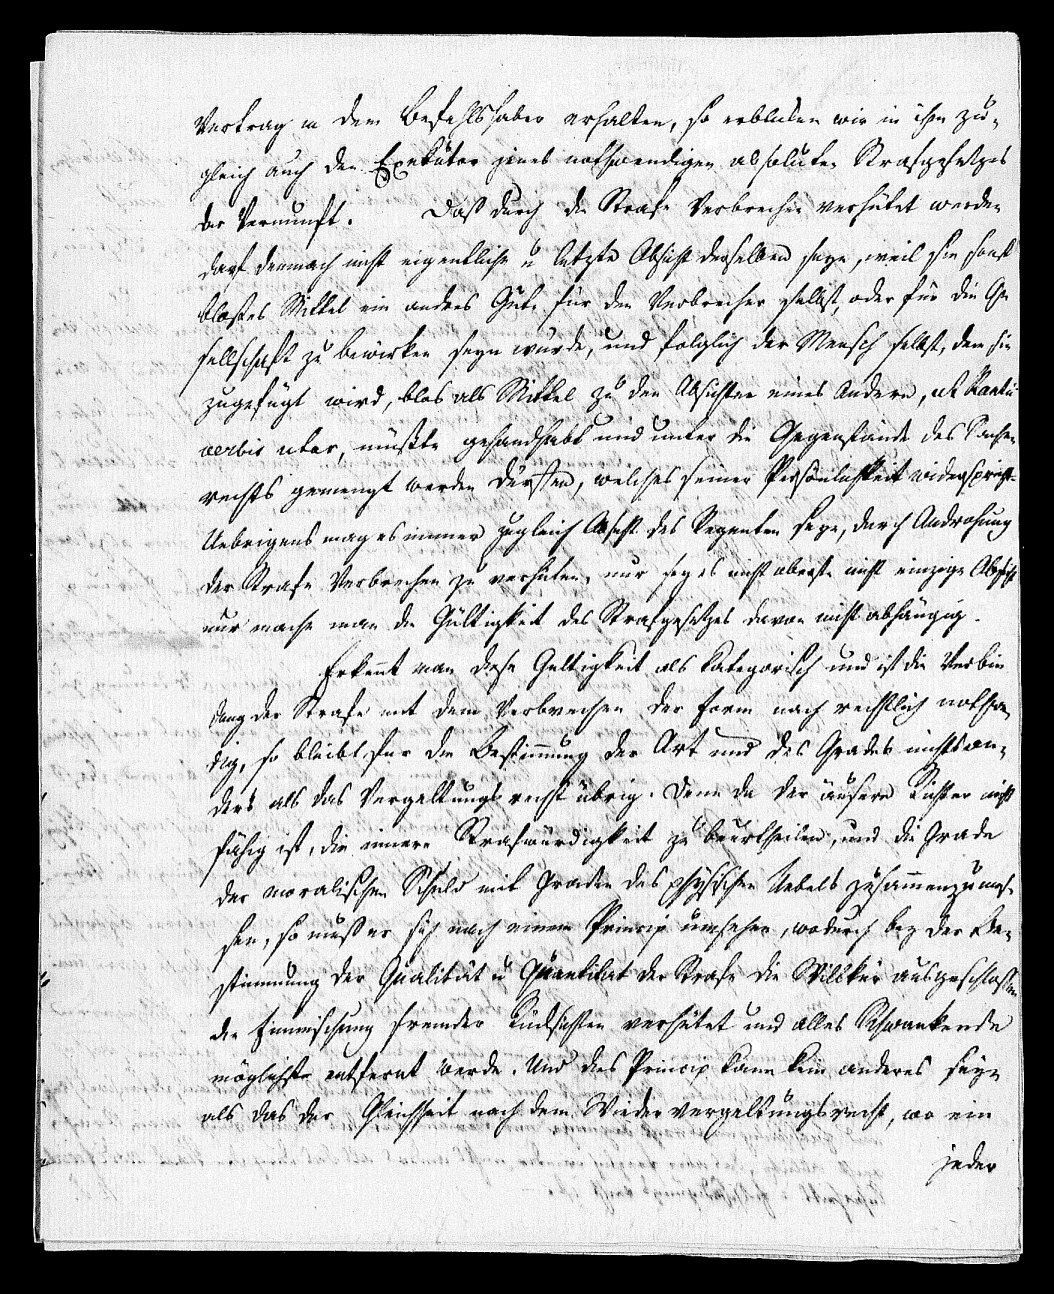 Vertrag in dem Befehlshaber erhalten, so erblicken wir in ihm zu-
gleich auch den Exekutor jenes nothwendigen absoluten Strafgesetzes
der Vernunft. Daß durch die Strafe Verbrechen verhütet werden
darf demnach nicht eigentliche u letzte Absicht derselben seyn, weil sie sonst
bloßes Mittel ein andres Gut, für den Verbrecher selbst, oder für die Ge
sellschaft zu bewirken seyn würde, und folglich der Mensch selbst, dem sie
zugefügt wird, blos als Mittel zu den Absichten eines Andern, ut Kantii
verbis utar, müßte gehandhabt und unter die Gegenstände des Sachen
rechts gemengt werden dürften, welches seiner Persönlichkeit widerspricht.
Uebrigens mag es immer zugleich Absicht des Regenten seyn, durch Androhung
der Strafe Verbrechen zu verhüten, nur sey es nicht oberste nicht einzige Absicht
nur mache man die Gültigkeit des Strafgesetzes davon nicht abhängig.
Erkennt man diese Gültigkeit als kategorisch und ist die Verbin
dung der Strafe mit dem Verbrechen der Form nach rechtlich nothwen
dig, so bleibt für die Bestimmung der Art und des Grades nichts an-
ders als das Vergeltungsrecht übrig. Denn da der äußere Richter nicht
fähig ist, die innere Strafwürdigkeit zu beurtheilen, und die Grade
der moralischen Schuld mit Graden des physischen Uebels zusammenzumes-
sen, so muß er sich nach einem Princip umsehen, wodurch bey der Be-
stimmung der Qualität u Quantität der Strafe die Willkür ausgeschlossen
die Einmischung fremder Rücksichten verhütet und alles Schwankende
möglichst entfernt werde. Und dies Princip kann kein anderes seyn
als das der Gleichheit nach dem Wiedervergeltungsrecht, wo ein
jeder